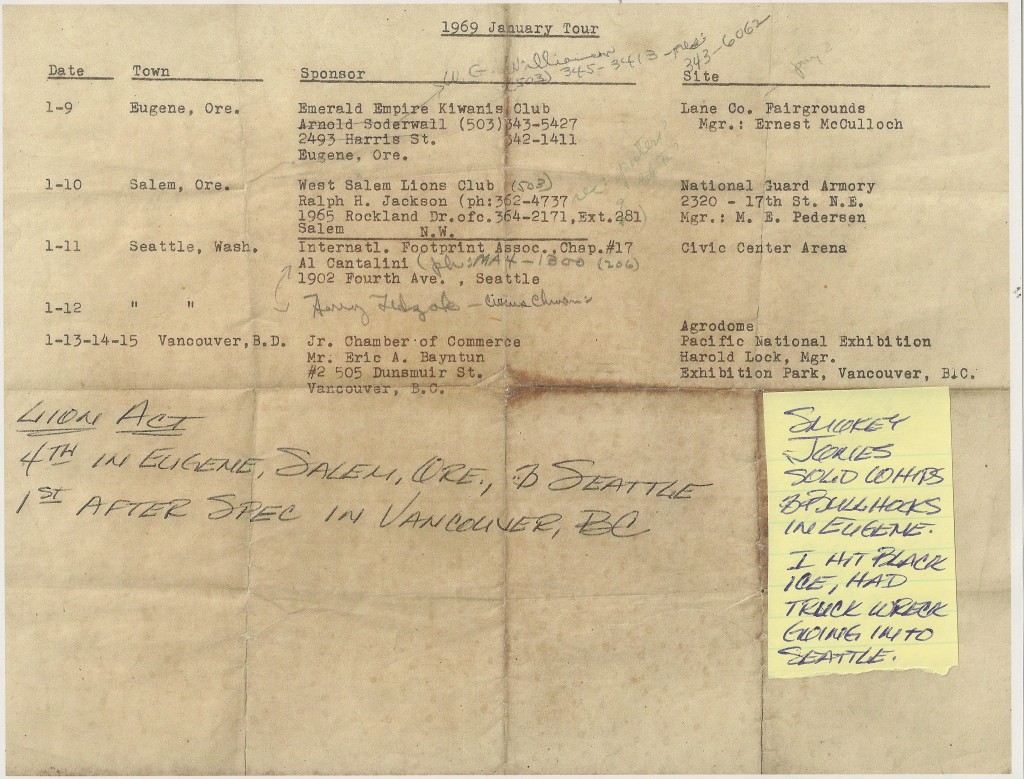 1969 January Tour
W. G. Williamson
(503) 345-3413 - res: 343-6062
Date Town Sponsor Site
1-9 Eugene, Ore. Emerald Empire Kiwanis Club Lane Co. Fairgrounds
Arnold Soderwall (503)343-5427 Mgr.: Ernest McCulloch
2493 Harris St. 342-1411
Eugene, Ore.
1-10 Salem, Ore. West Salem Lions Club (503) National Guard Armory
Ralph H. Jackson (ph:362-4737 2320 - 17th St. N.E.
1965 Rockland Dr.ofc.364-2171,Ext.281) Mgr.: M. E. Pedersen
Salem N.W.
1-11 Seattle, Wash. Internatl. Footprint Assoc., Chap.#17 Civic Center Arena
Al Cantalini (ph: MA4-1300 (206)
1902 Fourth Ave. , Seattle
1-12 " " Harry
Agrodome
1-13-14-15 Vancouver,B.D. Jr. Chamber of Commerce Pacific National Exhibition
Mr. Eric A. Bayntun Harold Lock, Mgr.
#2 505 Dunsmuir St. Exhibition Park, Vancouver, B.C.
Vancouver, B.C.
LION ACT
4TH IN EUGENE, SALEM, ORE., & SEATTLE
1ST AFTER SPEC IN VANCOUVER, BC
SMOKEY
JONES
SOLD WHIPS
& BULLHOOKS
IN EUGENE.
I HIT BLACK
ICE, HAD
TRUCK WRECK
GOING INTO
SEATTLE.